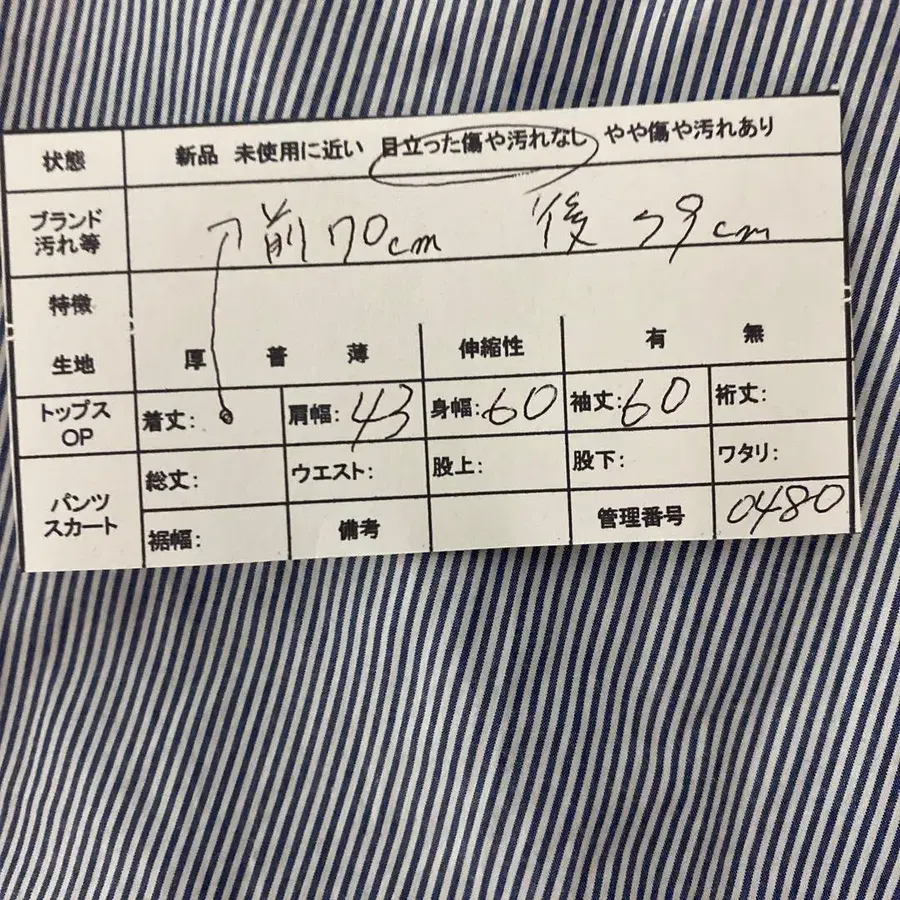 状態 新品 未使用に近い 目立った傷や汚れなし やや傷や汚れあり
ブランド
汚れ等 前70cm 後79cm
特徴
生地 厚 普 薄 伸縮性 有 無
トップス
OP 着丈: 肩幅:43 身幅:60 袖丈:60 裄丈:
パンツ
スカート 総丈: ウエスト: 股上: 股下: ワタリ:
裾幅: 備考 管理番号 0480